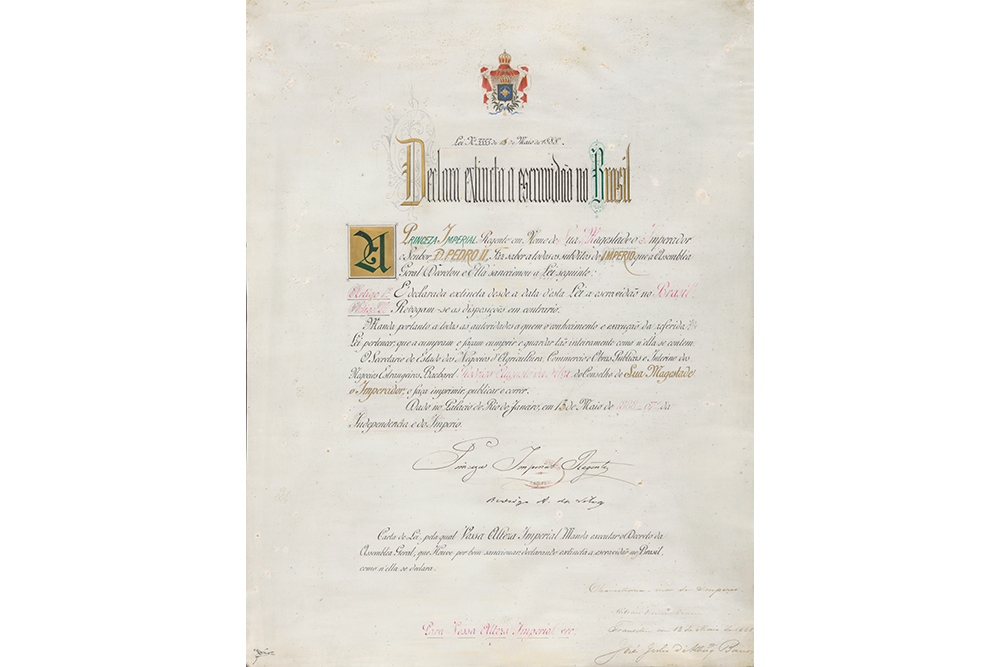 Lei Nº 3353 de 13 de Maio de 1888.
Declara extincta a escravidão no Brasil
A PRINCEZA IMPERIAL Regente em Nome de Sua Magestade o Imperador
o Senhor D. PEDRO II, Faz saber a todos os subditos do IMPERIO que a Assembléa
Geral Decretou e Ella sanccionou a Lei seguinte:
Artigo 1º É declarada extincta desde a data d'esta Lei a escravidão no Brasil.
Artigo 2º Revogam-se as disposições em contrario.
Manda portanto a todas as autoridades a quem o conhecimento e execução da referida
Lei pertencer, que a cumpram e façam cumprir e guardar tão inteiramente como n'ella se contem.
O Secretario de Estado dos Negocios d'Agricultura, Commercio e Obras Publicas e Interino dos
Negocios Estrangeiros, Bacharel Rodrigo Augusto da Silva do Conselho de Sua Magestade
o Imperador, o faça imprimir, publicar e correr.
Dado no Palacio do Rio de Janeiro, em 13 de Maio de 1888 67º da
Independencia e do Imperio.
Princeza Imperial Regente
Rodrigo A. da Silva
Carta de Lei, pela qual Vossa Alteza Imperial Manda executar o Decreto da
Assembléa Geral, que Houve por bem sanccionar declarando extincta a escravidão no Brasil,
como n'ella se declara.
Chancellaria-mór do Imperio
Transitou em 13 de Maio de 1888
José Julio de Albuqº Barros
Para Vossa Alteza Imperial ver.